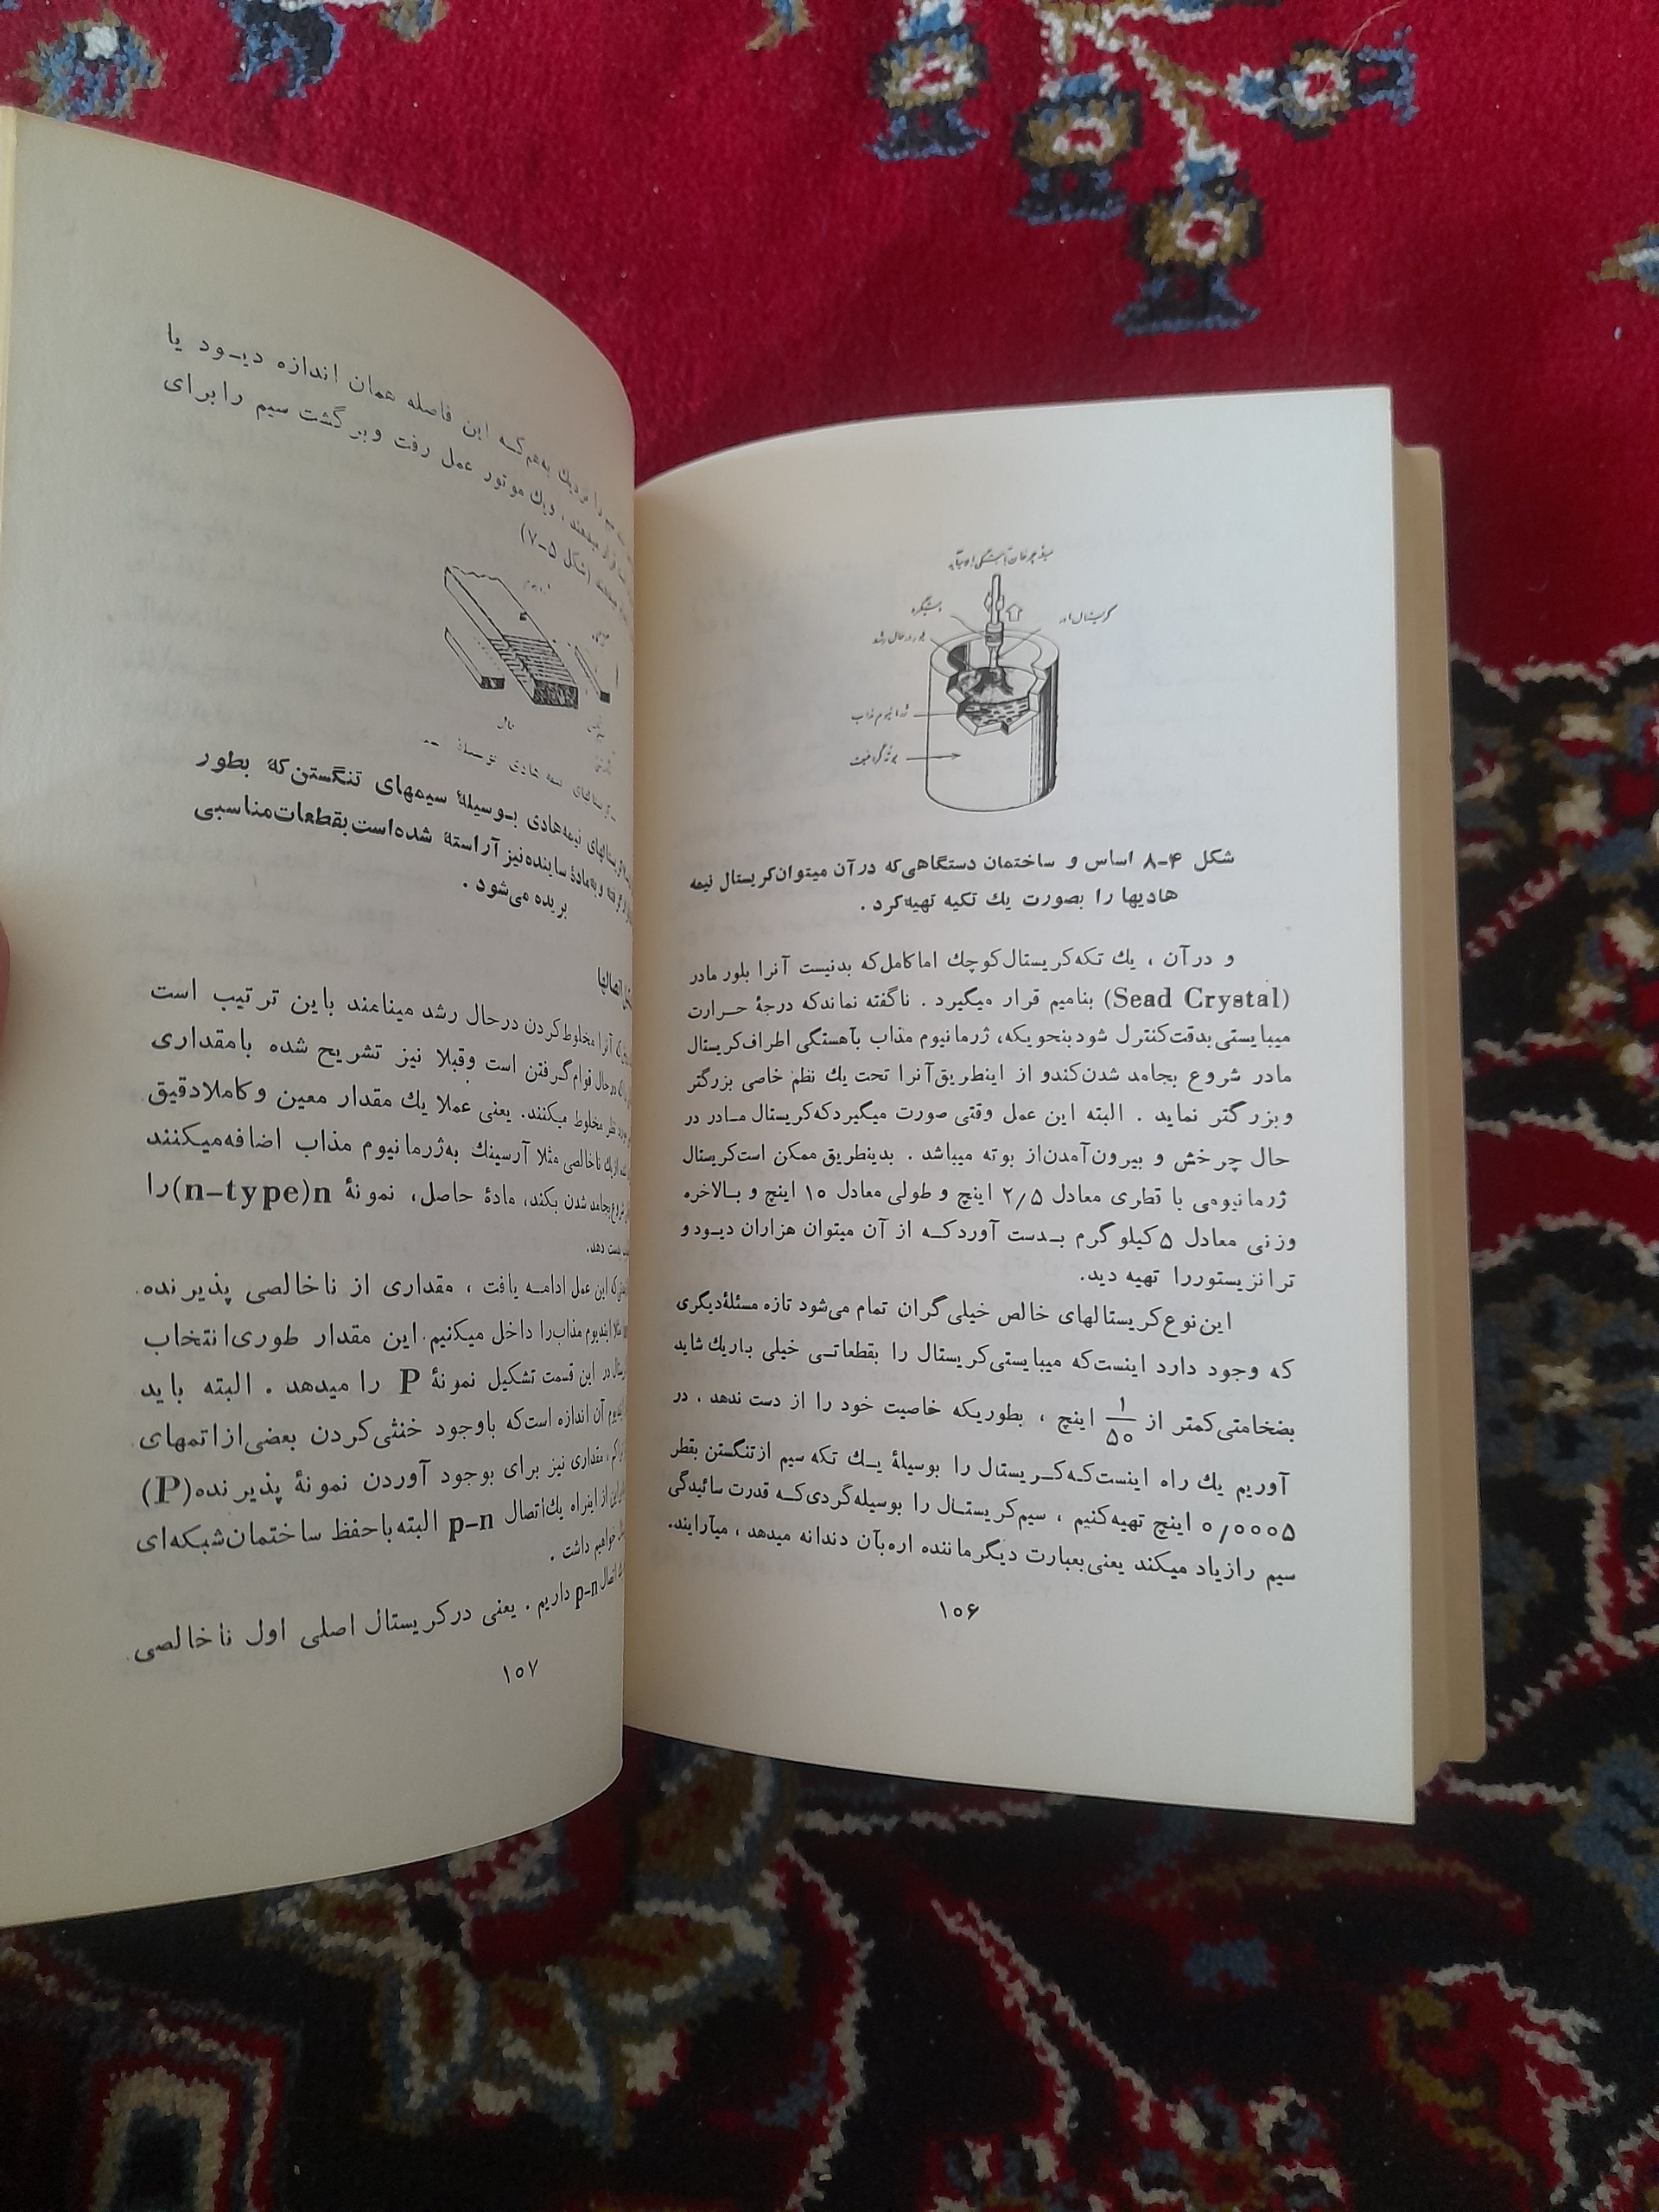 کریستال‌اور
بلور درحال رشد
ژرمانیوم مذاب
بوتهٔ گرافیت
شکل ۴ـ۸ اساس و ساختمان دستگاهی‌که درآن میتوان‌کریستال نیمه
هادیها را بصورت یك تکیه تهیه‌کرد .
و درآن ، یك تکه‌کریستال‌کوچك اماکامل‌که بدنیست آنرا بلور مادر
(Sead Crystal) بنامیم قرار میگیرد . ناگفته نماندکه درجهٔ حـرارت
میبایستی‌بدقت‌کنترل شودبنحویکه، ژرمانیوم مذاب بآهستگی اطراف‌کریستال
مادر شروع بجامد شدن‌کندو از اینطریق‌آنرا تحت یك نظم خاصی بزرگتر
وبزرگتر نماید . البته این عمل وقتی صورت میگیردکه‌کریستال مـادر در
حال چرخش و بیرون‌آمدن‌از بوته میباشد . بدینطریق ممکن است‌کریستال
ژرمانیومی با قطری معادل ۲/۵ اینچ و طولی معادل ۱۰ اینچ و بـالاخره
وزنی معادل ۵کیلوگرم بـدست آوردکـه از آن میتوان هزاران دیـودو
ترانزیستوررا تهیه دید.
این‌نوع‌کریستالهای خالص خیلی‌گران تمام می‌شود تازه مسئلهٔ‌دیگری
که وجود دارد اینست‌که میبایستی‌کریستال را بقطعاتـی خیلی باریك شاید
بضخامتی‌کمتر از ۱/۵۰ اینچ ، بطوریکه خاصیت خود را از دست ندهد . در
آوریم یك راه اینست‌کـه‌کـریستال را بوسیلهٔ یـك تکه سیم ازتنگستن بقطر
۰/۰۰۰۵ اینچ تهیه‌کنیم ، سیم‌کریستـال را بوسیله‌گردی‌کـه قدرت سائیدگی
سیم رازیاد میکند یعنی‌بعبارت دیگرماننده اره‌بآن دندانه میدهد ، میآرایند.
۱۰۶
را نزدیك به‌هم‌کـه این فاصله همان اندازه دیـود یا
قرار میدهند ، ویك موتور عمل رفت وبرگشت سیم رابرای
(شکل ۵ـ۷)
نیمه‌هادی بـوسیلهٔ سیمهای تنگستن‌که بطور
وبه‌مادهٔ ساینده‌نیزآراسته شده‌است‌بقطعات‌مناسبی
بریده می‌شود .
اتصالها
آنرا مخلوط‌کردن درحال رشد مینامند باین ترتیب است
درحال قوام‌گرفتن است وقبلا نیز تشریح شده بامقداری
مخلوط میکنند. یعنی عملا یك مقدار معین وکاملادقیق
ناخالصی مثلا آرسینك به‌ژرمانیوم مذاب اضافه‌میکنند
بجامد شدن بکند، مادهٔ حاصل، نمونهٔ n(n-type)را
دهد.
این عمل ادامـه یافت ، مقداری از ناخالصی پذیرنده
مثلا ایندیوم مذاب‌را داخل میکنیم.این مقدار طوری‌انتخاب
در این قسمت تشکیل نمونهٔ P را میدهد . البته باید
آن اندازه است‌که باوجود خنثی‌کردن بعضی‌ازاتمهای
، مقداری نیز برای بوجود آوردن نمونهٔ پذیرنده(P)
از اینراه یك‌اتصال p-n البته‌باحفظ ساختمان‌شبکه‌ای
خواهیم داشت .
اتصال p-n داریم . یعنی درکریستال اصلی اول ناخالصی
۱۰۷